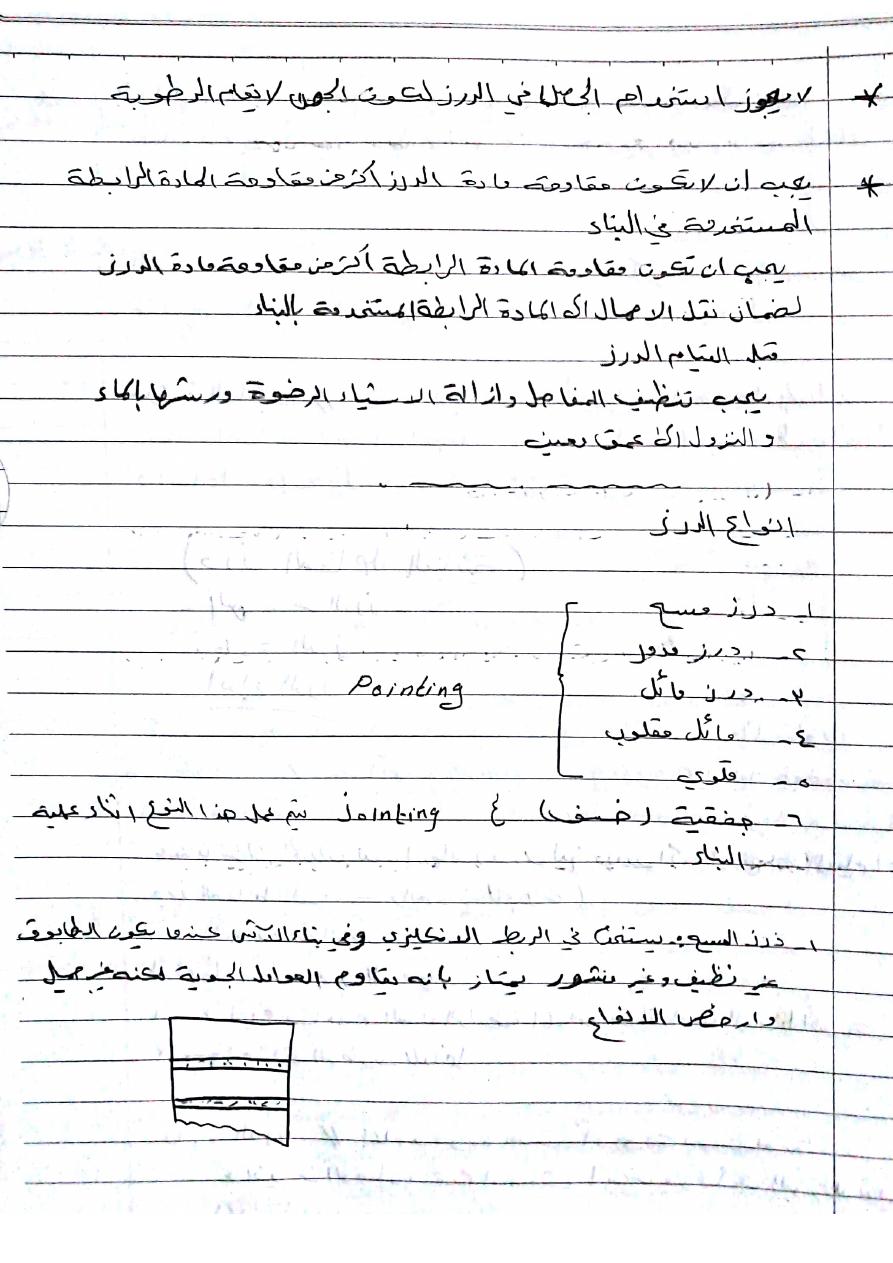 * لا يجوز استخدام الجص في الدرز لكون الجص لا يقاوم الرطوبة
* يجب ان لا تكون مقاومة مادة الدرز أكثر من مقاومة المادة الرابطة
المستخدمة في البناء
يجب ان تكون مقاومة المادة الرابطة أكثر من مقاومة مادة الدرز
لضمان نقل الاحمال الى المادة الرابطة المستخدمة بالبناء
قبل القيام الدرز
يجب تنظيف المفاصل وازالة الاشياء الرخوة ورشها بالماء
والنزول الى عمق معين
انواع الدرز
١- درز مسح
٢- درز مدول
٣- درز مائل
Pointing
٤- مائل مقلوب
٥- فلوي
٦- جفقية (خسف) Jointing يتم عمل هذا النوع اثناء عملية
البناء
١- درز المسح: يستخدم في الربط الانكليزي وفي بناء الاسس عندما يكون الطابوق
غير نظيف وغير منشور يمتاز بانه يقاوم العوامل الجوية لكنه غير جميل
وارخص الانواع